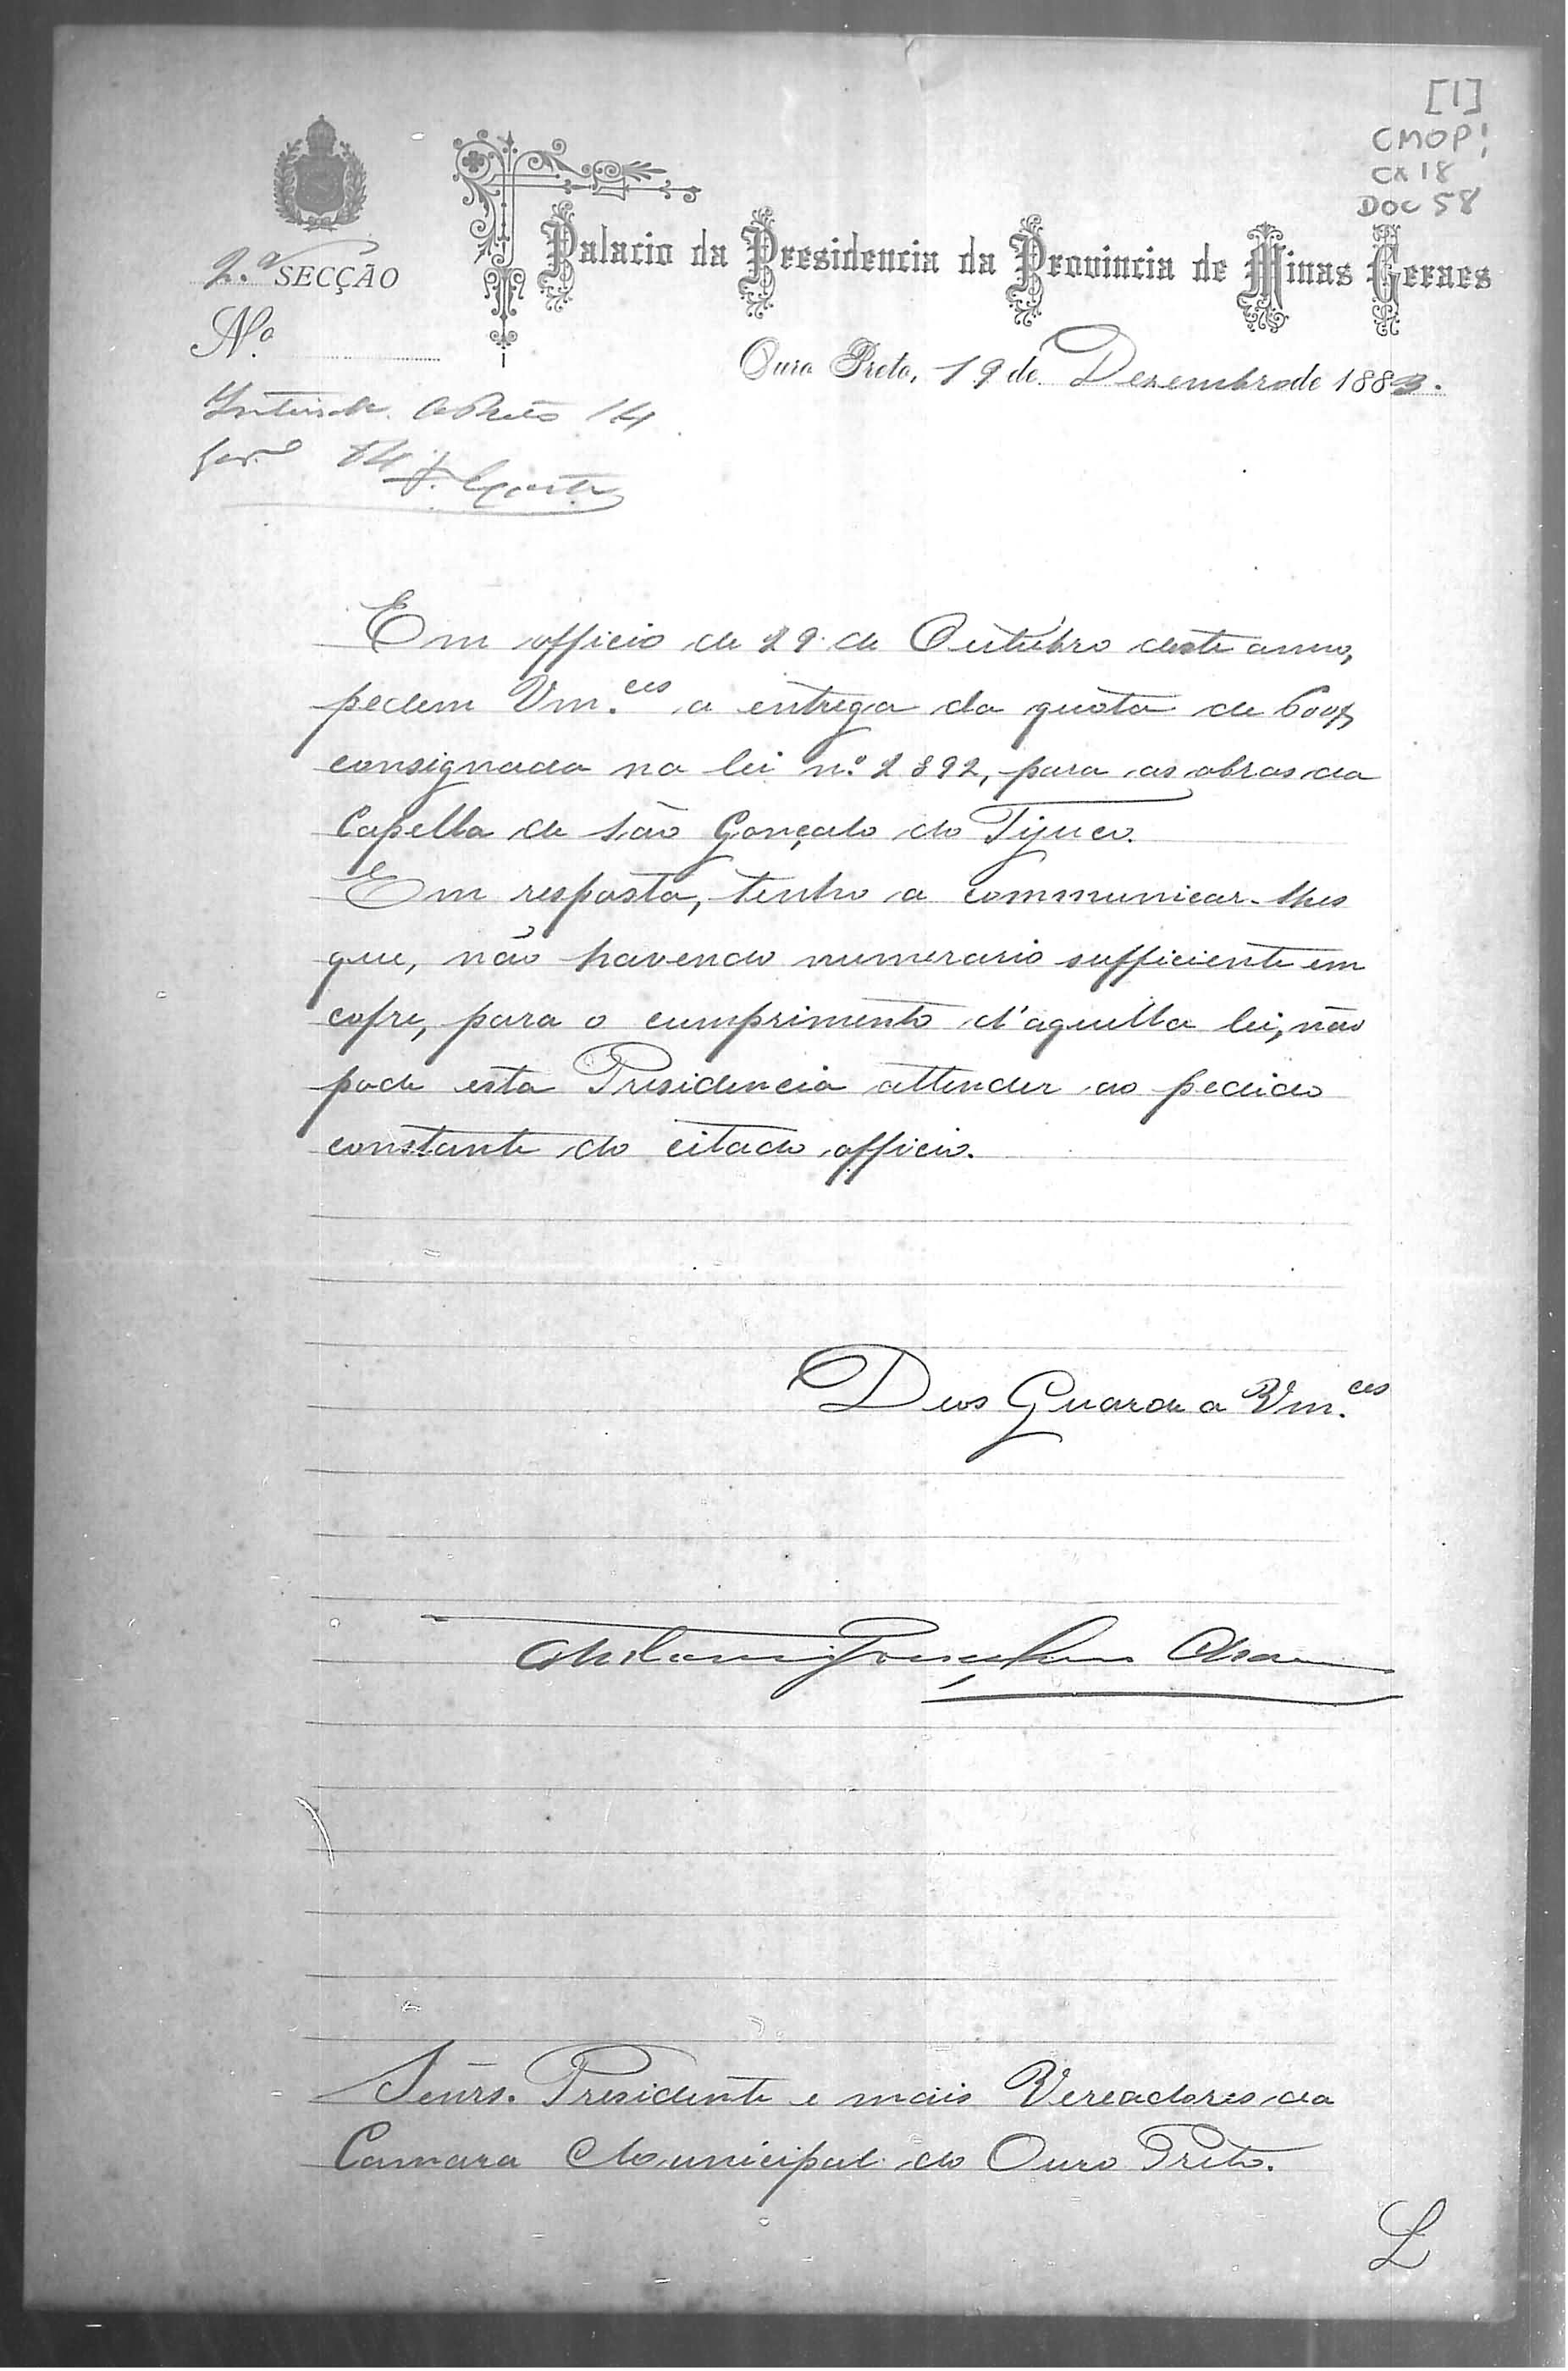 [1]
CMOP!
CX 18
DOC 58
Palacio da Presidencia da Provincia de Minas Geraes
2.ª SECÇÃO
N.º
Ouro Preto, 19 de Dezembro de 1883.
14
Em officio de 29 de Outubro deste anno,
pedem Vm.ces a entrega da quota de 600$
consignada na lei n.º 2892, para as obras da
Capella de São Gonçalo do Tijuco.
Em resposta, tenho a communicar-lhes
que, não havendo numerario sufficiente em
cofre, para o cumprimento d'aquella lei, não
pode esta Presidencia attender ao pedido
constante do citado officio.
Deos Guarde a Vm.ces
Senrs. Presidente e mais Vereadores da
Camara Municipal do Ouro Preto.
L